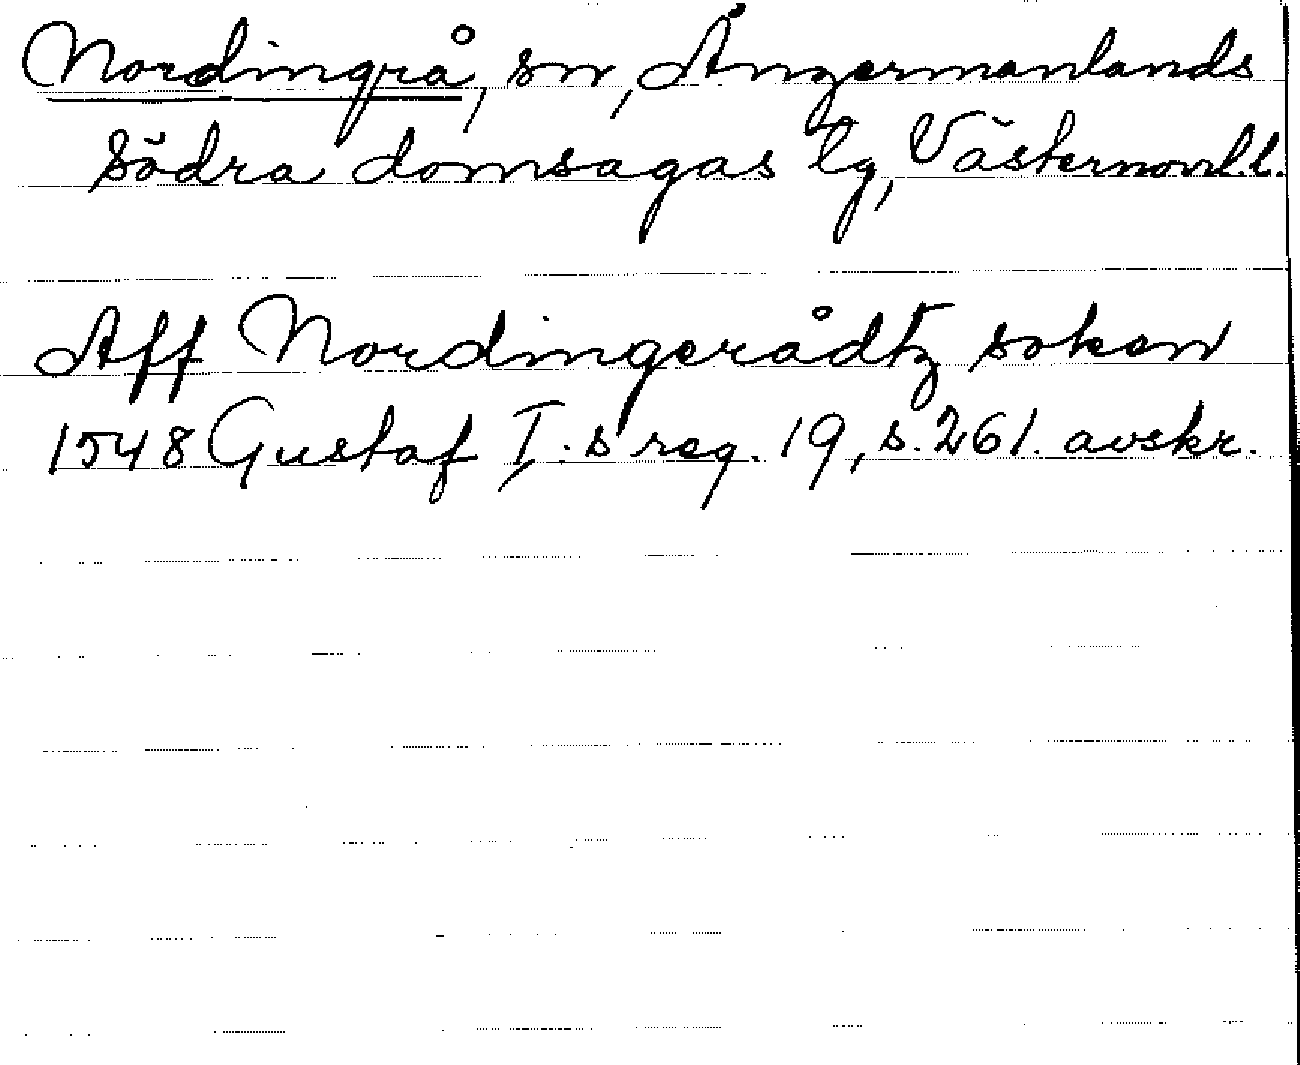 Nordingrå, sn, Ångermanlands
södra domsagas lg, Västernorrl.l.
Aff Nordingerådtz soken
1548 Gustaf I:s reg. 19, s. 261. avskr.